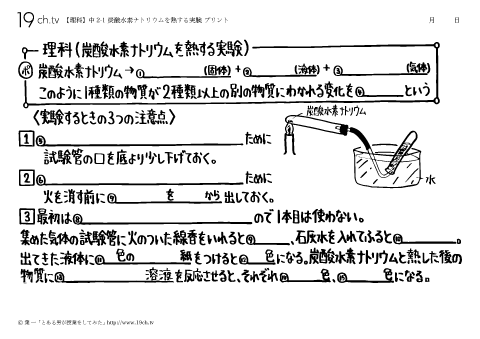 19ch.tv 【理科】中2-1 炭酸水素ナトリウムを熱する実験 プリント 月 日
理科(炭酸水素ナトリウムを熱する実験)
ポ 炭酸水素ナトリウム→① (固体)+② (液体)+③ (気体)
このように1種類の物質が2種類以上の別の物質にわかれる変化を④ という
〈実験するときの3つの注意点〉
炭酸水素ナトリウム
1 ⑤ ために
試験管の口を底より少し下げておく。
2 ⑥ ために
火を消す前に⑦ を から 出しておく。
水
3 最初は⑧ ので1本目は使わない。
集めた気体の試験管に火のついた線香をいれると⑨ 、石灰水を入れてふると⑩ 。
出てきた液体に⑪ 色の 紙をつけると⑫ 色になる。炭酸水素ナトリウムと熱した後の
物質に⑬ 溶液を反応させると、それぞれ⑭ 色、⑮ 色になる。
© 葉一「とある男が授業をしてみた」http://www.19ch.tv